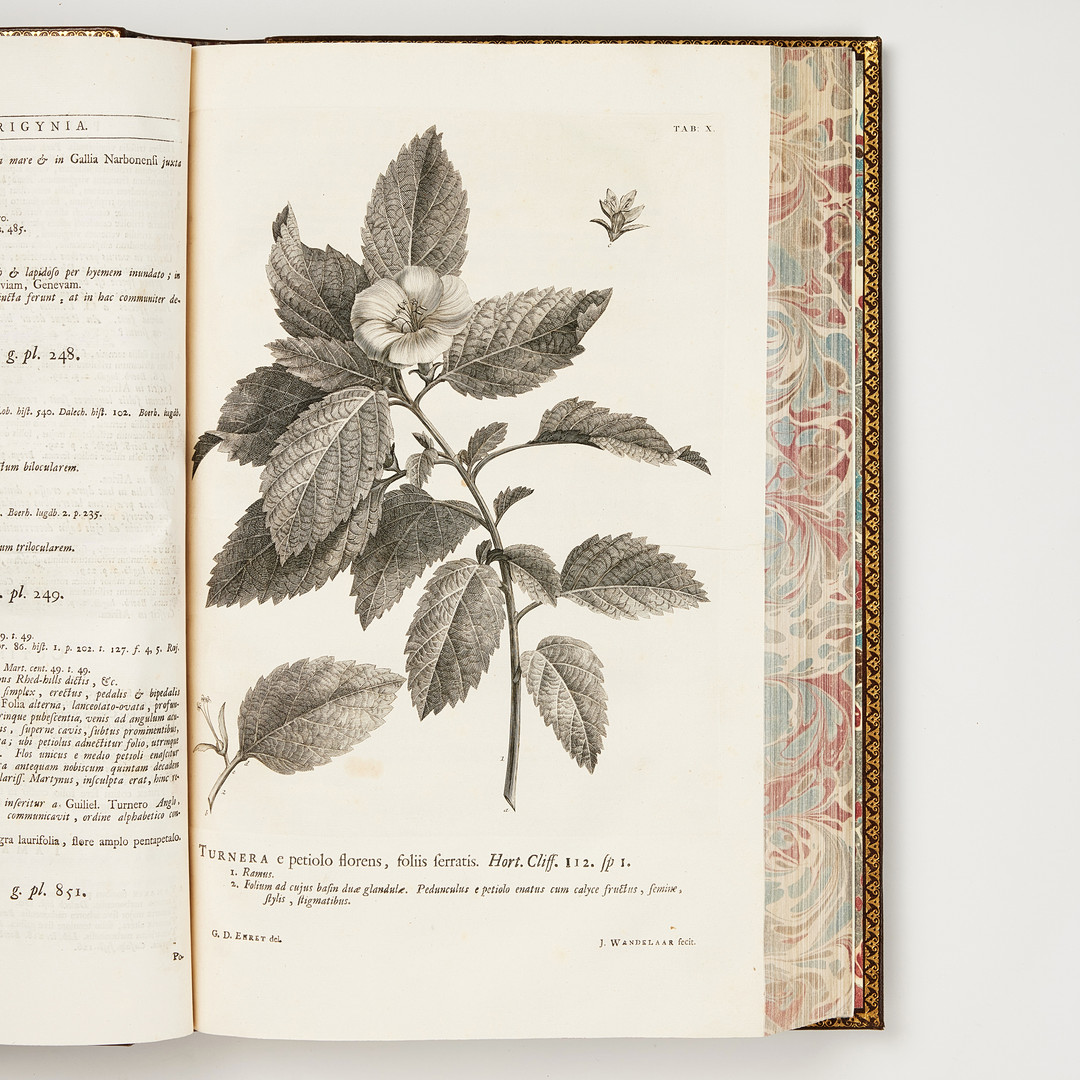 RIGYNIA.
mare & in Gallia Narbonensi juxta
485.
& lapidoso per hyemem inundato; in
viam, Genevam.
ferunt; at in hac communiter de-
g. pl. 248.
hist. 540. Dalech. hist. 102. Boerh. lugdb.
tum bilocularem.
Boerh. lugdb. 2. p. 235.
um trilocularem.
pl. 249.
9. t. 49.
r. 86. hist. 1. p. 202. t. 127. f. 4, 5. Raj.
Mart. cent. 49. t. 49.
us Rhed-hills dictis, &c.
simplex, erectus, pedalis & bipedalis
Folia alterna, lanceolato-ovata, profun-
rinque pubescentia, venis ad angulum acu-
us, superne cavis, subtus prominentibus,
ta; ubi petiolus adnectitur folio, utrinque
Flos unicus e medio petioli enascitur
ra antequam nobiscum quintam decadem
lariss. Martynus, insculpta erat, hinc re-
inseritur a Guiliel. Turnero Anglo,
communicavit, ordine alphabetico con-
gra laurifolia, flore amplo pentapetalo.
g. pl. 851.
Po-
TAB. X.
1
2
2
TURNERA e petiolo florens, foliis serratis. Hort. Cliff. 112. sp 1.
1. Ramus.
2. Folium ad cujus basin duæ glandulæ. Pedunculus e petiolo enatus cum calyce fructus, semine,
stylis, stigmatibus.
G. D. EHRET del.
J. WANDELAAR fecit.